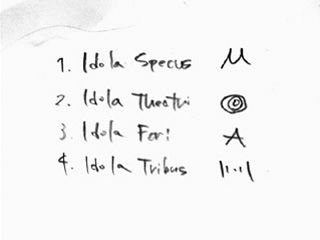 1. Idola Specus M
2. Idola Theatri
3. Idola Fori A
4. Idola Tribus